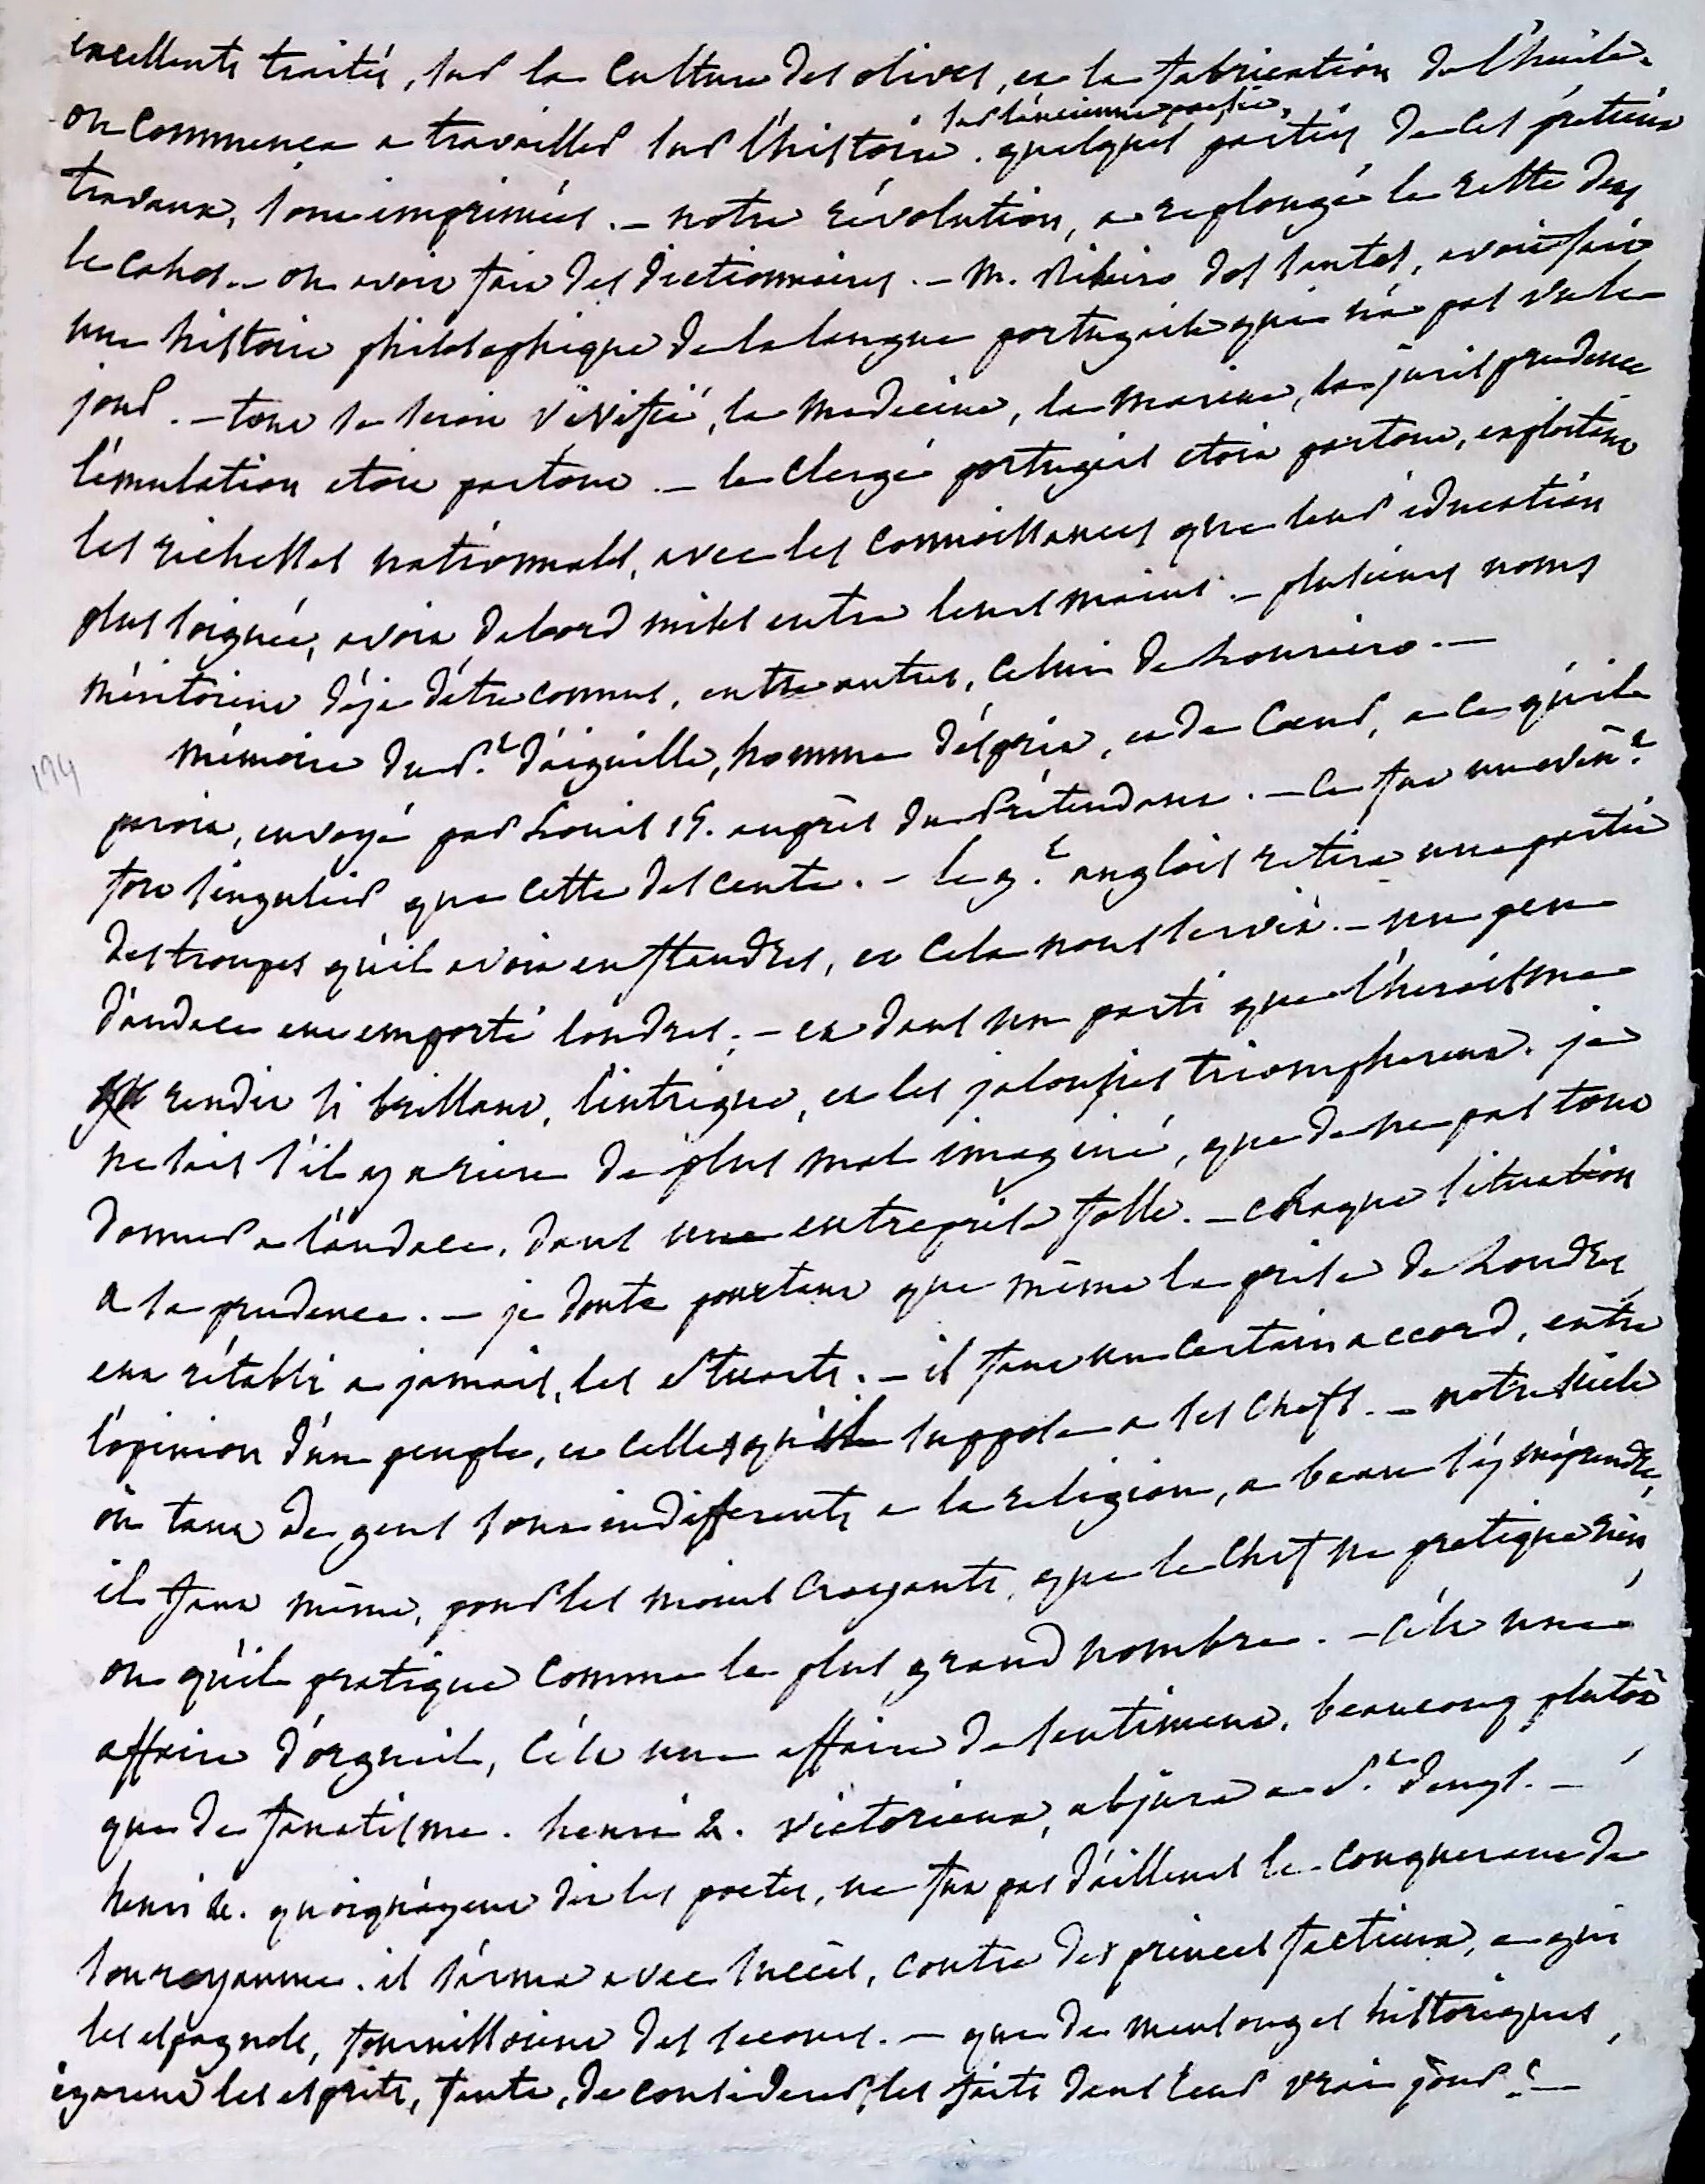 excellents traités, sur la culture des olives, et la fabrication de l'huile.
sur l'ancienne poesie,
on commença a travailler sur l'histoire. quelques parties de ces prétieux
travaux, sont imprimées. – notre révolution, a replongé le reste dans
le cahos. – on avoit fait des dictionnaires. – M. Ribeiro dos santos, avoit fait
une histoire philosophique de la langue portugaise qui n'a pas vu le
jour. – tout se seroit vivifié, la medecine, la marine, la jurisprudence
l'émulation etoit partout. – le clergé portugais etoit partout, exploitant
les richesses nationnales, avec les connoissances que leur éducation
plus soignée, avoit dabord mises entre leurs mains. – plusieurs noms
méritoient déja d'être connus, entre autres, celui de Loureiro. –
194
mémoire du Sr. d'aiguille, homme d'ésprit, et de coeur, a ce qu'il
paroit, envoyé par Louis 15. auprès du Prétendant. – ce fut un evént
fort singulier que cette descente. – le gl. anglois retira une partie
des troupes qu'il avoit en flandres, et cela nous servit. – un peu
d'audace eut emporté londres; – et dans un parti que l'heroisme
rendit si brillant, l'intrigue, et les jalousies triompherent. je
ne sais s'il y a rien de plus mal imaginé, que de ne pas tout
donner a l'audace, dans une entreprise folle. – chaque situation
a sa prudence. – je doute pourtant que même la prise de Londres
eut rétabli a jamais, les Stuarts. – il faut un certain accord, entre
l'opinion d'un peuple, et celles qu'il suppose a ses chefs. – notre siècle
où tant de gens sont indifferents a la religion, a beau s'y méprendre,
il faut même, pour les moins croyants, que le chef ne pratique rien,
ou qu'il pratique comme le plus grand nombre. – c'est une
affaire d'orgueil, c'est une affaire de sentiment, beaucoup plutôt
que de fanatisme. henri 4. victorieux, abjura a St. Denys. –
henri 4. quoiqu'ayent dit les poetes, ne fut pas d'ailleurs le conquerant de
son royaume. il s'arma avec succès, contre des princes factieux, a qui
les espagnols, fournissoient des secours. – que de mensonges historiques,
égarent les esprits, faute, de considerer, les faits dans leur vrai jour! –